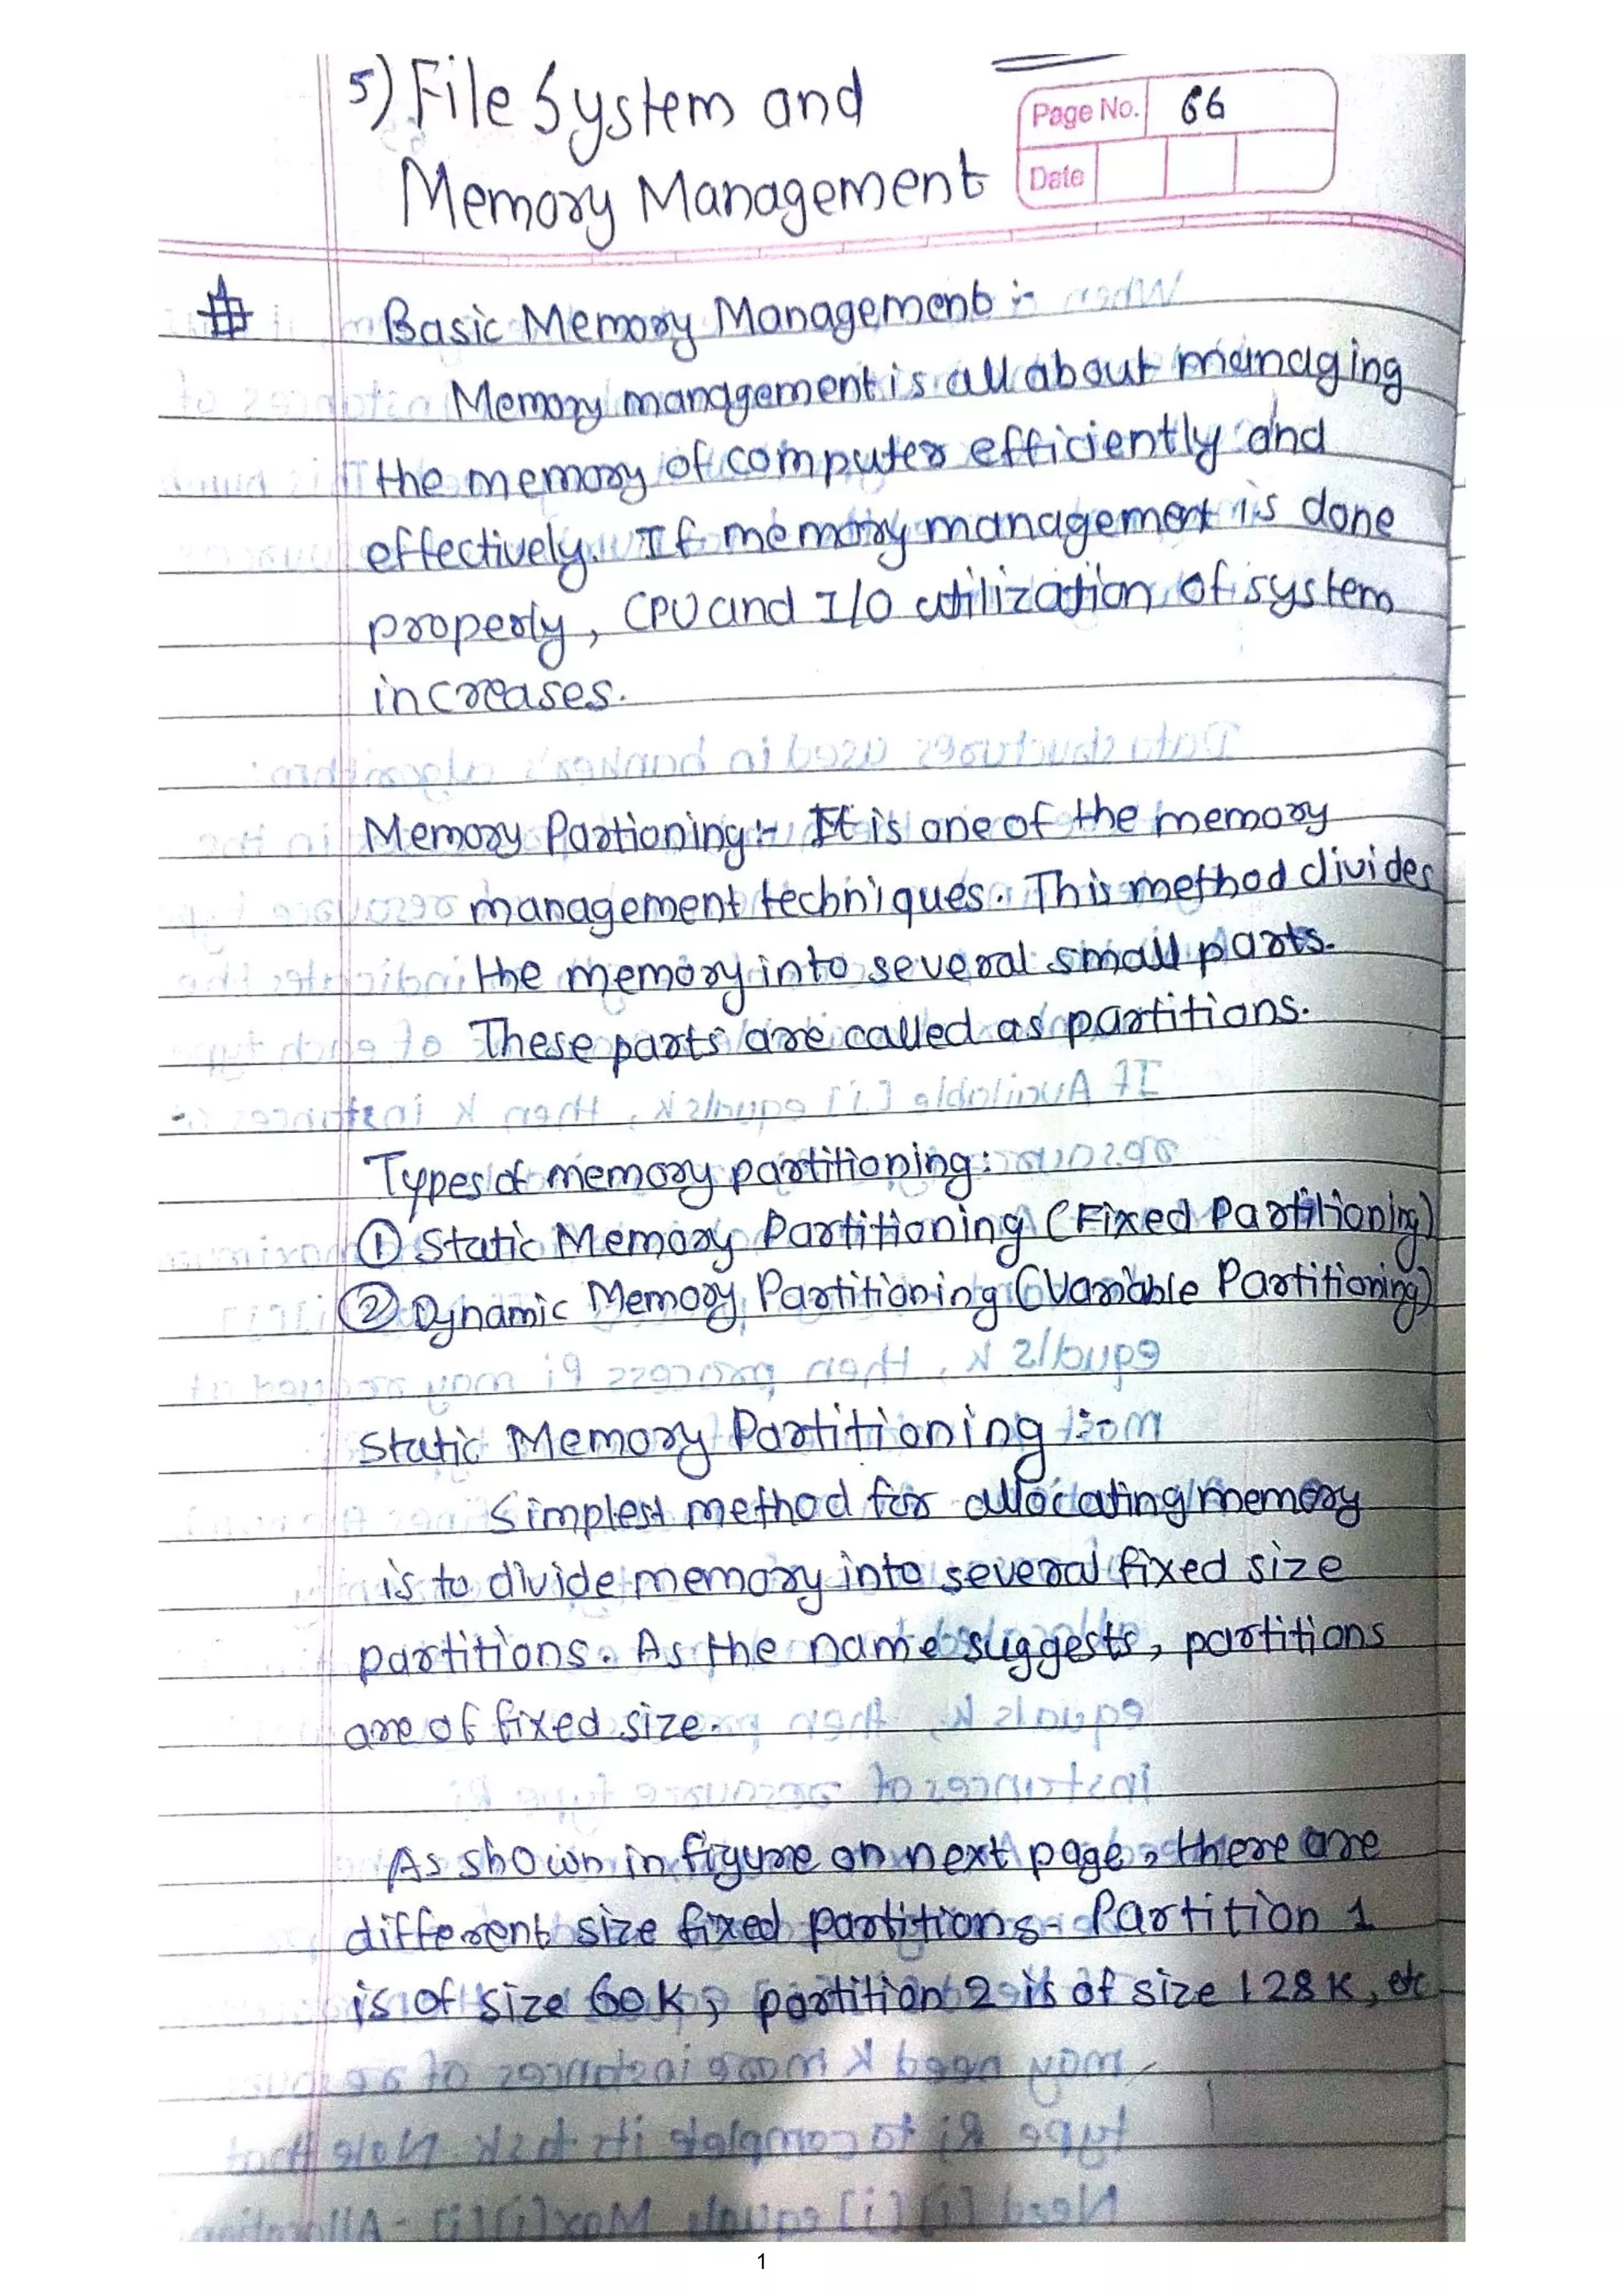 5) File System and
Memory Management
Page No. 66
Date
# Basic Memory Management :-
Memory management is all about managing
the memory of computer efficiently and
effectively. If memory management is done
properly, CPU and I/O utilization of system
increases.
Memory Partioning :- It is one of the memory
management techniques. This method divides
the memory into several small parts.
These parts are called as partitions.
Types of memory partitioning :
① Static Memory Partitioning (Fixed Partitioning)
② Dynamic Memory Partitioning (Variable Partitioning)
Static Memory Partitioning :-
Simplest method for allocating memory
is to divide memory into several fixed size
partitions. As the name suggests, partitions
are of fixed size.
As shown in figure on next page, there are
different size fixed partitions. Partition 1
is of size 60K, partition 2 is of size 128K, etc
1